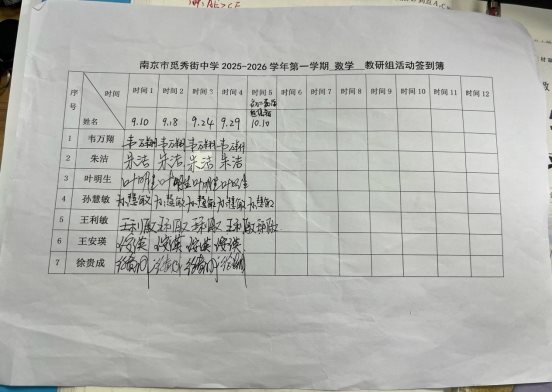 南京市觅秀街中学 2025-2026 学年第一学期 数学 教研组活动签到簿
序号 时间 姓名 时间 1 时间 2 时间 3 时间 4 时间 5 时间 6 时间 7 时间 8 时间 9 时间 10 时间 11 时间 12
9.10 9.18 9.24 9.29 10.10
1 韦万翔 韦万翔 韦万翔 韦万翔 韦万翔
2 朱洁 朱洁 朱洁 朱洁 朱洁
3 叶明生 叶明生 叶明生 叶明生 叶明生
4 孙慧敏 孙慧敏 孙慧敏 孙慧敏 孙慧敏 孙慧敏
5 王利敏 王利敏 王利敏 王利敏 王利敏 王利敏
6 王安瑛
7 徐贵成